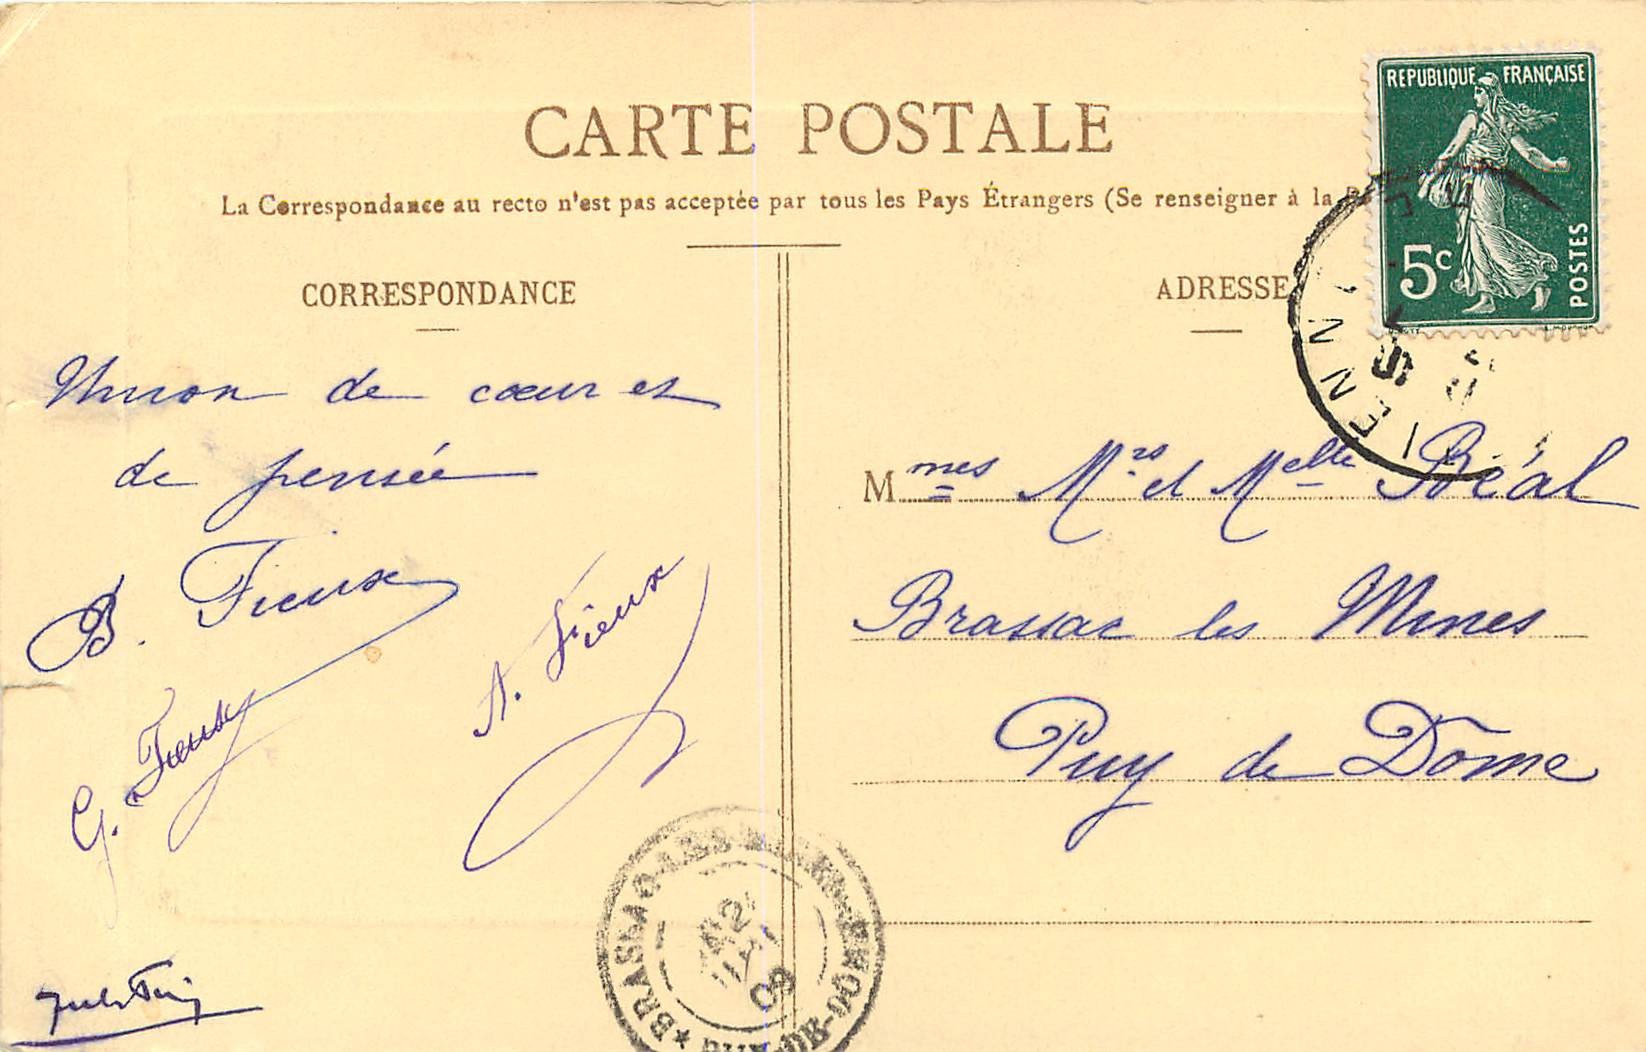 CARTE POSTALE
La Correspondance au recto n'est pas acceptée par tous les Pays Étrangers (Se renseigner à la
REPUBLIQUE FRANÇAISE
5c
POSTES
CORRESPONDANCE
Union de cœur et
de pensée
B. Fieux
A. Fieux
G. Fieux
ADRESSE
IENN
Mmes Mrs et Melle Réal
Brassac les Mines
Puy de Dome
BRASSAC-LES-MINES
PUY-DE-DÔME
09